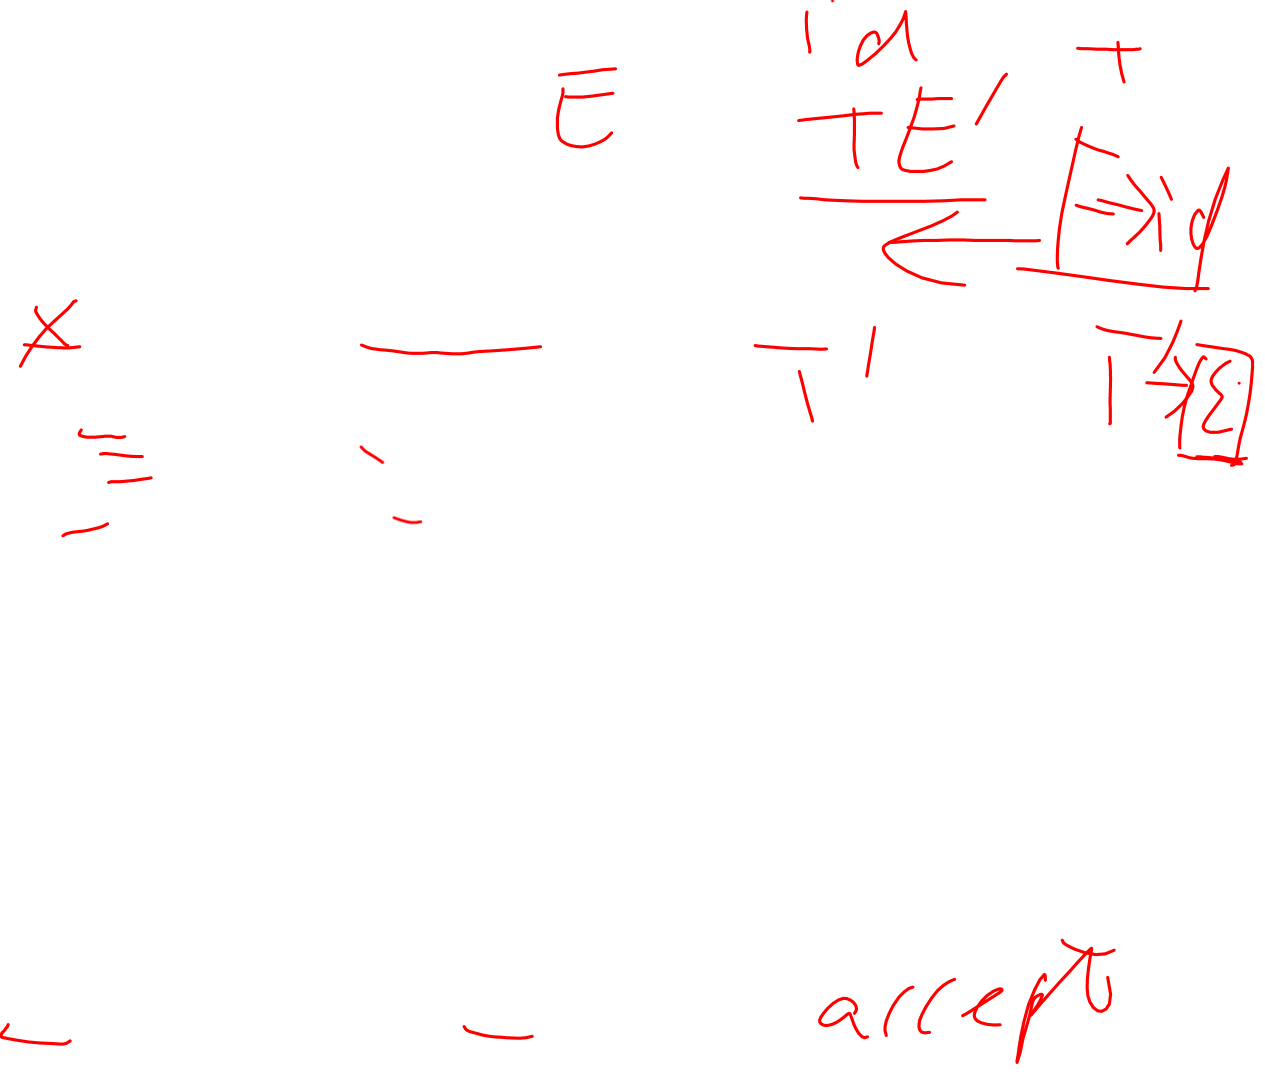 id +
E TE'
F → id
T' T' → ε
accept